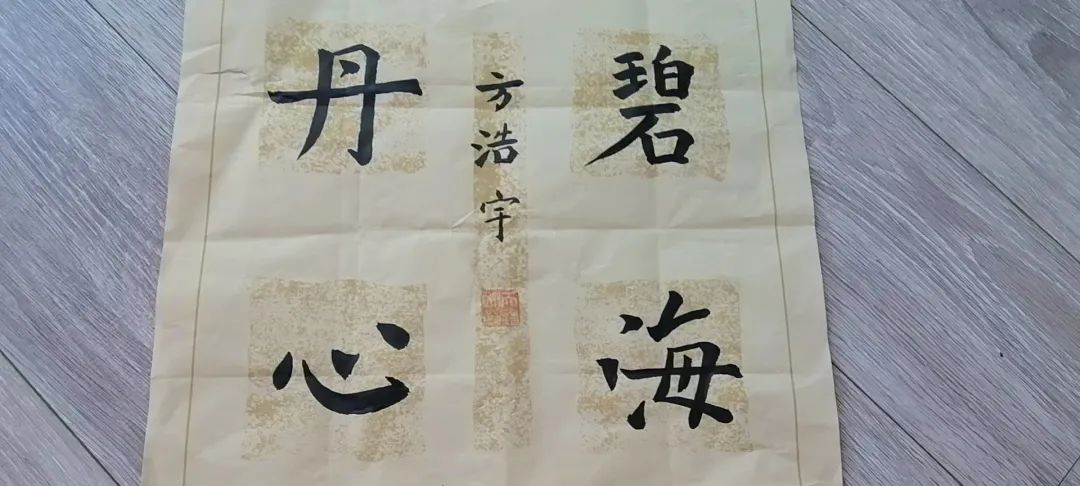 碧海
丹心
方浩宇